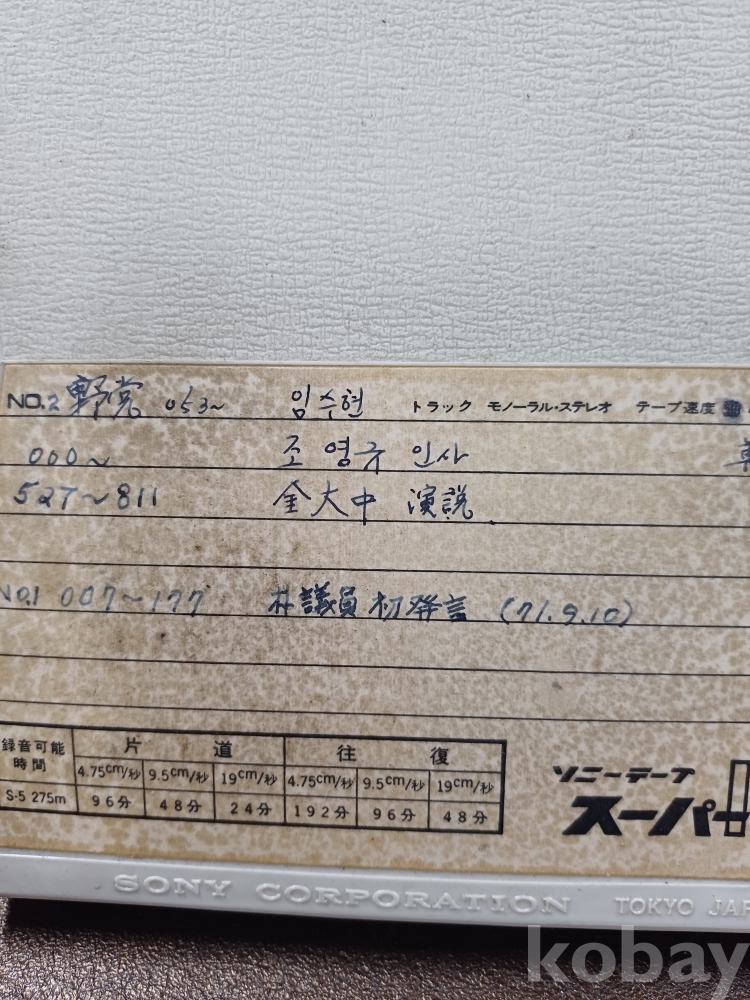 NO.2 野党 053~ 임수현 トラック モノーラル・ステレオ テープ速度
000~ 조영규 인사
527~811 金大中 演説
NO.1 007~177 朴議員 初発言 (71.9.10)
録音可能時間 片道 往復
4.75cm/秒 9.5cm/秒 19cm/秒 4.75cm/秒 9.5cm/秒 19cm/秒
S-5 275m 96分 48分 24分 192分 96分 48分
ソニーテープ
スーパー
SONY CORPORATION TOKYO JAP
kobay